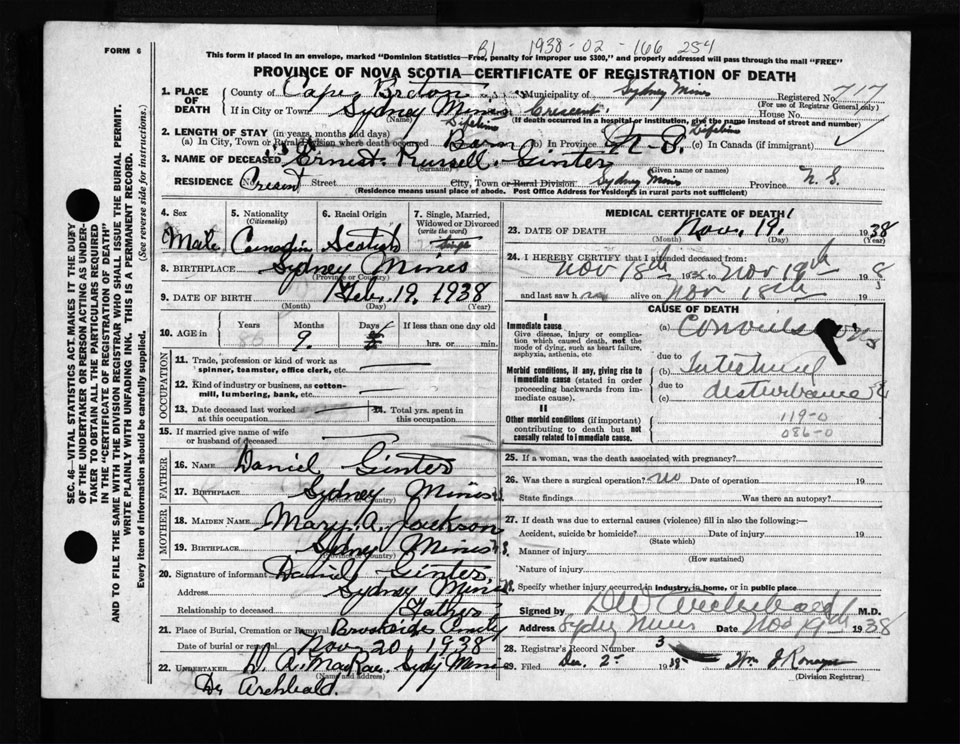 FORM 6
B1 1938-02-166 254
This form if placed in an envelope, marked "Dominion Statistics—Free, penalty for improper use $300," and properly addressed will pass through the mail "FREE"
PROVINCE OF NOVA SCOTIA—CERTIFICATE OF REGISTRATION OF DEATH
1. PLACE OF DEATH
County of Cape Breton Municipality of Sydney Mines Registered No. 717
(For use of Registrar General only)
If in City or Town Sydney Mines Crescent House No.
(If death occurred in a hospital or institution, give the name instead of street and number)
2. LENGTH OF STAY (in years, months and days)
(a) In City, Town or Rural Division where death occurred Born Lifetime (b) In Province N.S. Lifetime (c) In Canada (if immigrant)
3. NAME OF DECEASED Ernest Russell Ginter
(Surname) (Given name or names)
RESIDENCE No. Cresent Street City, Town or Rural Division Sydney Mines Province N. S.
(Residence means usual place of abode. Post Office Address for residents in rural parts not sufficient)
4. Sex Male
5. Nationality (Citizenship) Canadian
6. Racial Origin Scotish
7. Single, Married, Widowed or Divorced (write the word) Single
8. BIRTHPLACE Sydney Mines
(Province or Country)
9. DATE OF BIRTH Feb. 19, 1938
(Month) (Day) (Year)
10. AGE in Years Months 9. Days If less than one day old hrs. or min.
OCCUPATION
11. Trade, profession or kind of work as spinner, teamster, office clerk, etc.
12. Kind of industry or business, as cotton-mill, lumbering, bank, etc.
13. Date deceased last worked at this occupation
14. Total yrs. spent in this occupation
15. If married give name of wife or husband of deceased
FATHER
16. NAME Daniel Ginter
17. BIRTHPLACE Sydney Mines
(Province or Country)
MOTHER
18. MAIDEN NAME Mary. A. Jackson
19. BIRTHPLACE Sydney Mines N.S.
(Province or Country)
20. Signature of informant Daniel Ginter,
Address Sydney Mines
Relationship to deceased Father
21. Place of Burial, Cremation or Removal Brookside Cemty
Date of burial or removal Nov 20 1938
22. UNDERTAKER D. A. MacRae Sydney Mines
Dr Archbald.
MEDICAL CERTIFICATE OF DEATH
23. DATE OF DEATH Nov. 19. 1938
(Month) (Day) (Year)
24. I HEREBY CERTIFY that I attended deceased from
Nov 18th 1938 to Nov 19th 1938
and last saw h alive on Nov 18th
CAUSE OF DEATH
I
Immediate cause
Give disease, injury or complication which caused death, not the mode of dying, such as heart failure, asphyxia, asthenia, etc
Morbid conditions, if any, giving rise to immediate cause (stated in order proceeding backwards from immediate cause).
II
Other morbid conditions (if important) contributing to death but not causally related to immediate cause.
(a) Convulsions
due to
(b) Intestinal
due to disturbance
(c)
119-0
086-0
25. If a woman, was the death associated with pregnancy?
26. Was there a surgical operation? no Date of operation 19
State findings Was there an autopsy?
27. If death was due to external causes (violence) fill in also the following:—
Accident, suicide or homicide? Date of injury 19
(State which)
Manner of injury
(How sustained)
Nature of injury
Specify whether injury occurred in industry, in home, or in public place
Signed by M.D.
Address Sydney Mines Date Nov 19th 1938
28. Registrar's Record Number 3
29. Filed Dec. 2 1938 Wm J
(Division Registrar)
SEC. 46—VITAL STATISTICS ACT. MAKES IT THE DUTY OF THE UNDERTAKER OR PERSON ACTING AS UNDERTAKER TO OBTAIN ALL THE PARTICULARS REQUIRED IN THE "CERTIFICATE OF REGISTRATION OF DEATH" AND TO FILE THE SAME WITH THE DIVISION REGISTRAR WHO SHALL ISSUE THE BURIAL PERMIT.
WRITE PLAINLY WITH UNFADING INK. THIS IS A PERMANENT RECORD.
Every item of Information should be carefully supplied. (See reverse side for instructions.)